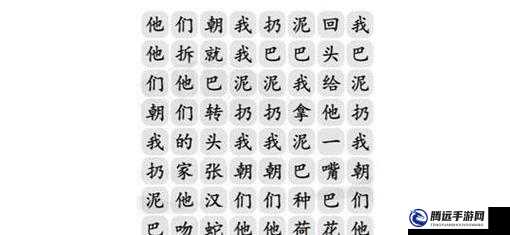 他们朝我扔泥回我
他拆就我巴巴头巴
们他巴泥泥我给泥
朝们转扔扔拿他扔
我的头我我泥一我
扔家张朝朝巴嘴朝
泥他汉们们种巴们
巴吻蛇他他荷花他
腾远手游网